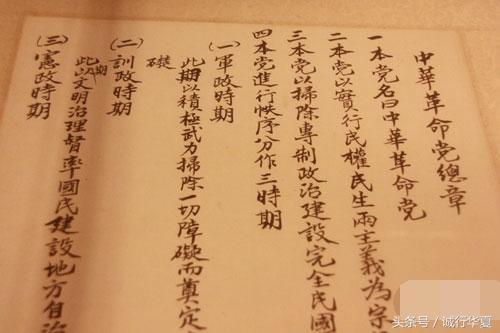 中華革命党總章
一本党名曰中華革命党
二本党以實行民權民生兩主義為宗
三本党以掃除專制政治建設完全民國
四本党進行秩序分作三時期
(一)軍政時期
此期以積極武力掃除一切障礙而奠定
礎
(二)訓政時期
此期以文明治理督率國民建設地方自治
(三)憲政時期
头条号／诚行华夏